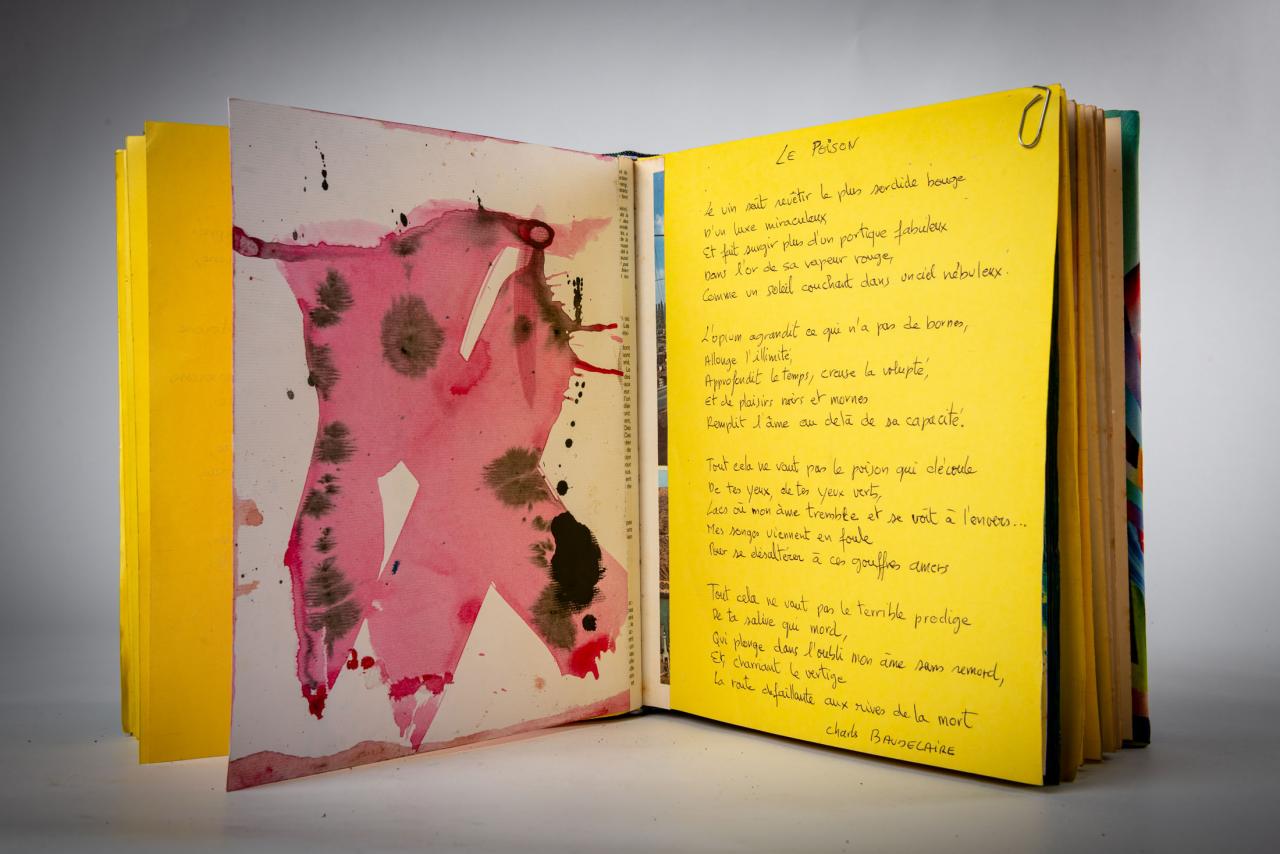 LE POISON
Le vin sait revêtir le plus sordide bouge
D'un luxe miraculeux
Et fait surgir plus d'un portique fabuleux
Dans l'or de sa vapeur rouge,
Comme un soleil couchant dans un ciel nébuleux.
L'opium agrandit ce qui n'a pas de bornes,
Allonge l'illimité,
Approfondit le temps, creuse la volupté,
Et de plaisirs noirs et mornes
Remplit l'âme au delà de sa capacité.
Tout cela ne vaut pas le poison qui découle
De tes yeux, de tes yeux verts,
Lacs où mon âme tremble et se voit à l'envers...
Mes songes viennent en foule
Pour se désaltérer à ces gouffres amers
Tout cela ne vaut pas le terrible prodige
De ta salive qui mord,
Qui plonge dans l'oubli mon âme sans remord,
Et, charriant le vertige
La roule défaillante aux rives de la mort
Charles BAUDELAIRE